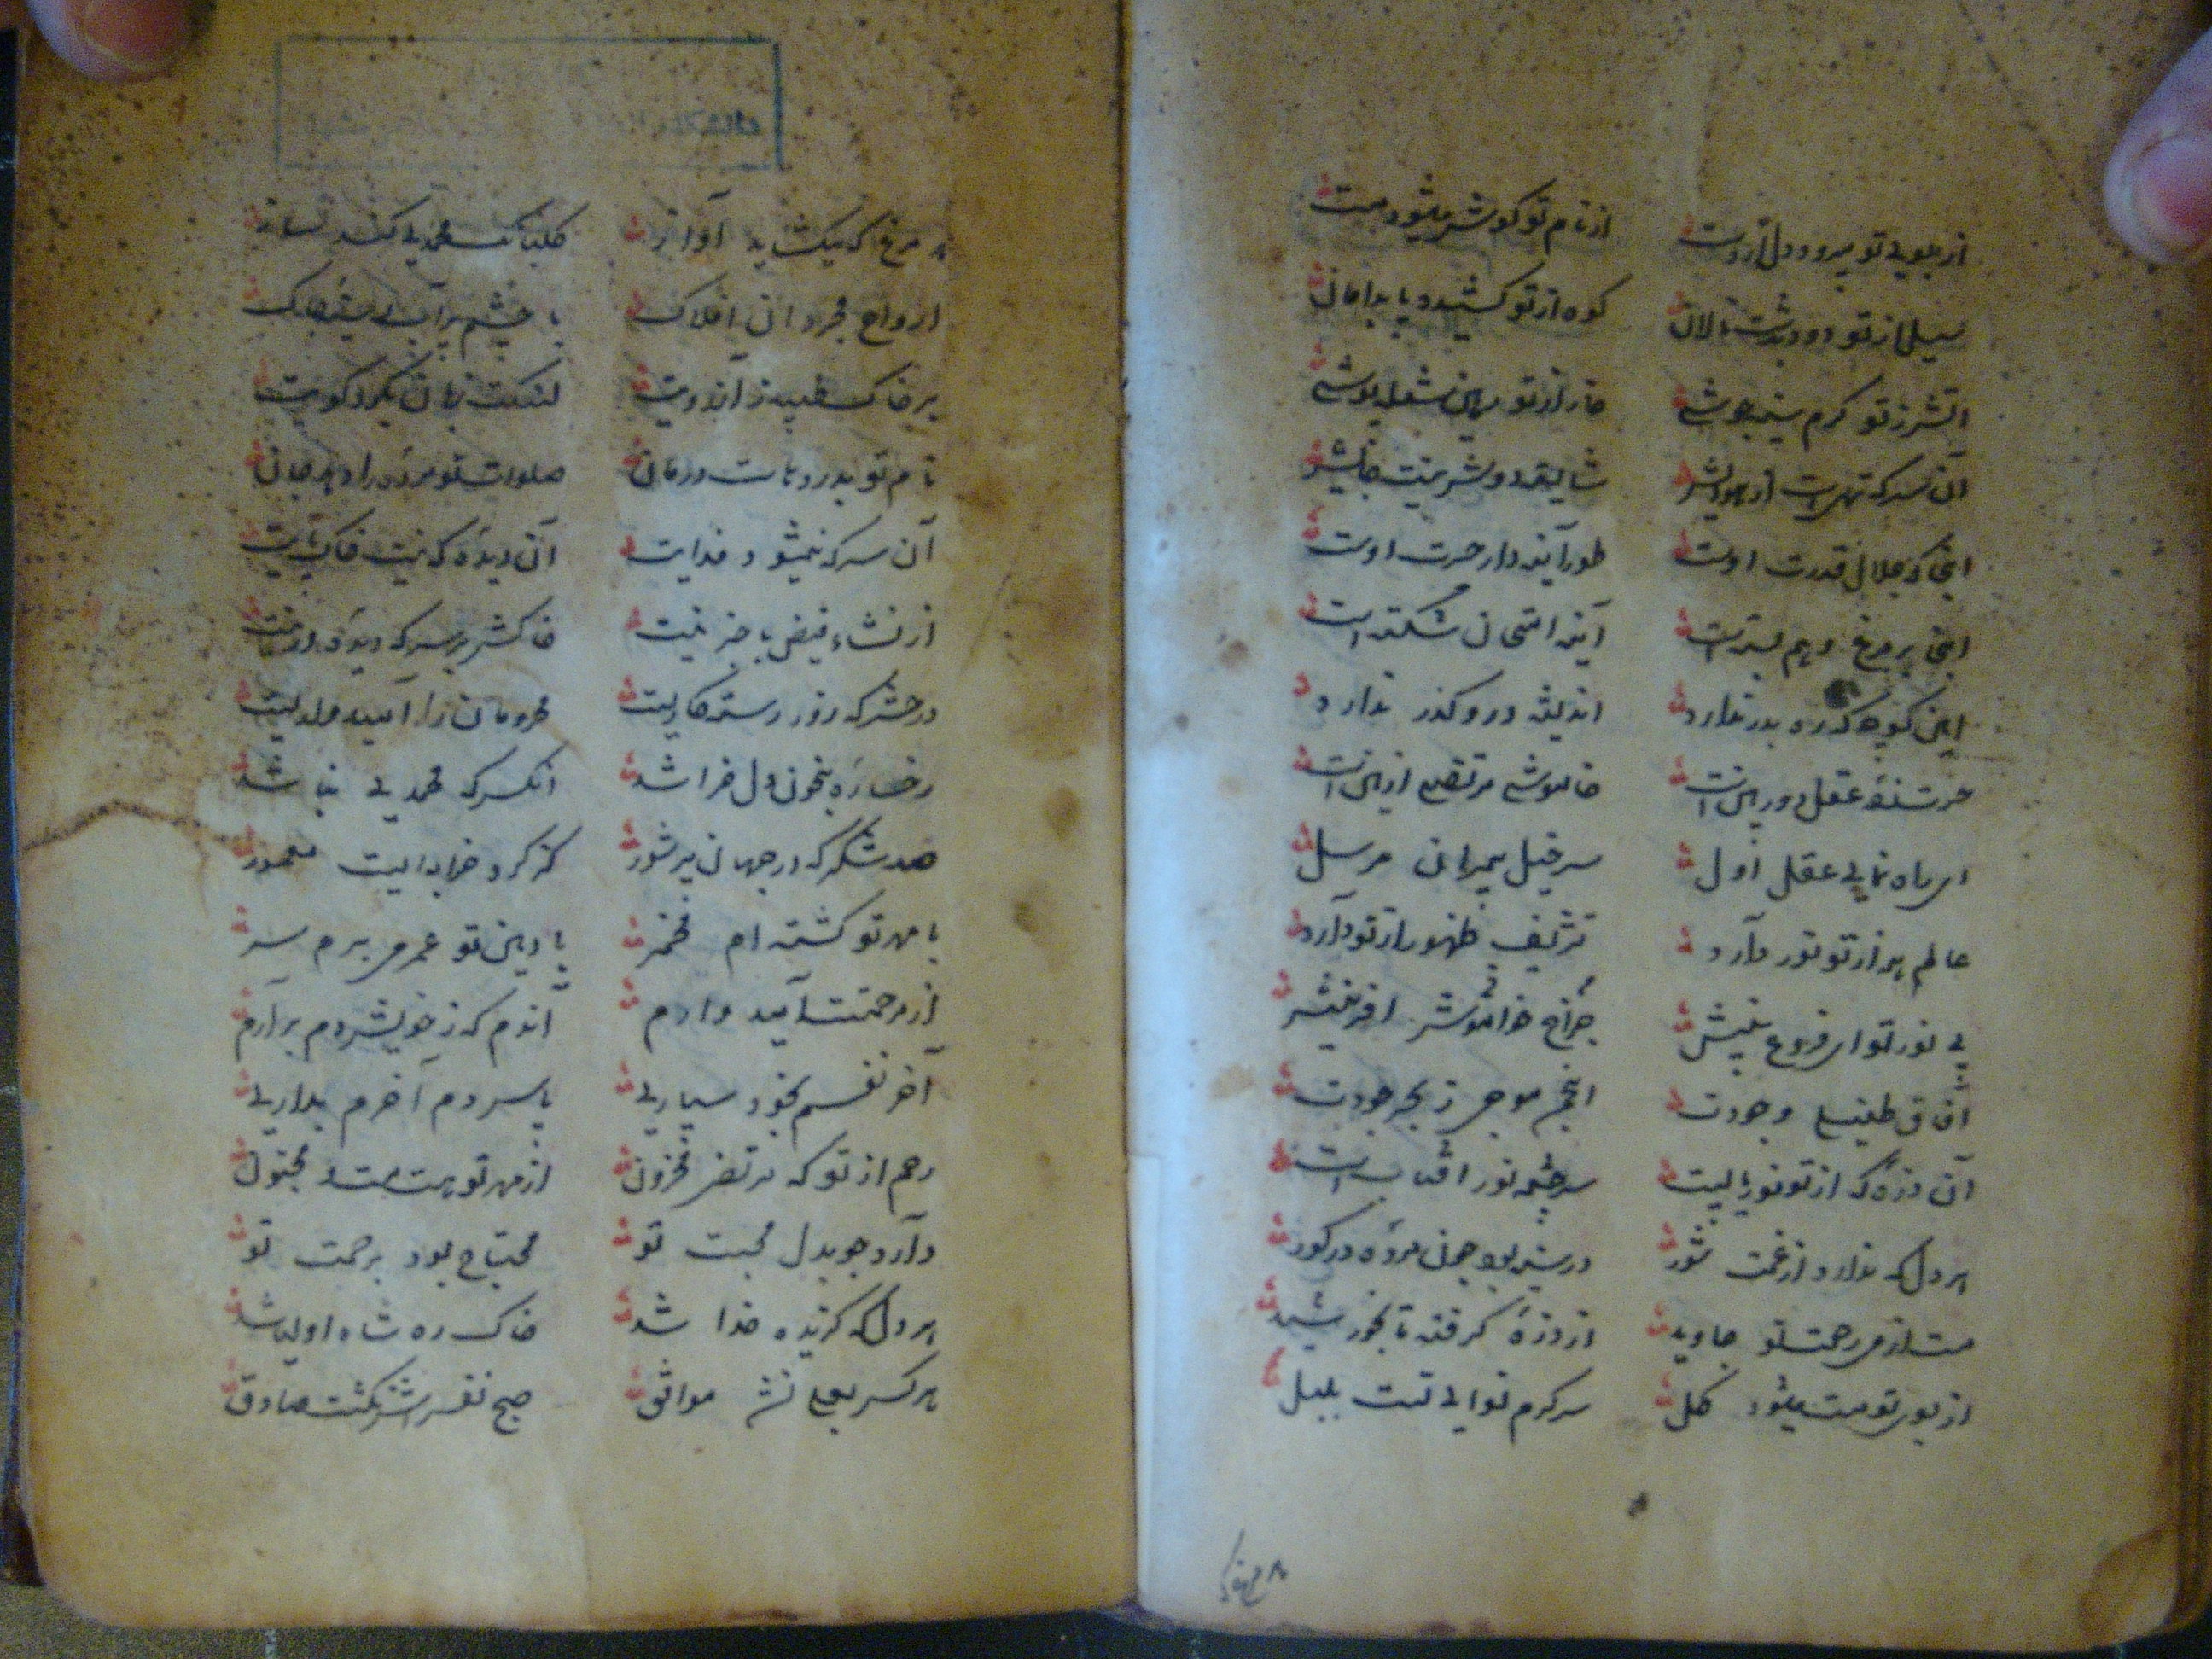 از بوی تو میرود دل از دست از نام تو گوش میشود مست
سیل از تو دود بدشت نالان کوه از تو کشیده پا بدامان
آتش ز تو گرم سینه جوشی خار از تو رهین شعله پوشی
آن سر که تهیست از هوایش
اینجا که جلال قدرت اوست طور آینه دار حیرت اوست
اینجا پر مرغ وهم بسته است آینه امتحان شکسته است
این کوچه که ره بدر ندارد اندیشه درو گذر ندارد
حیرت زده عقل دوربین است خاموشی مرتضی ازین است
ای راه نمای عقل اول سرخیل پیمبران مرسل
عالم همه از تو نور دارد تشریف ظهور از تو دارد
بی نور تو ای فروغ بینش چراغ آفرینش
آفاق طفیلی وجودت انجم موجی ز بحر جودت
آن ذره که از تو نور یابست سرچشمه نور آفتابست
هر دل که ندارد از غمت شور در سینه بود چون مرده در گور
مست از می رحمت تو جاوید از ذره گرفته تا بخورشید
از بوی تو مست میشود گل سرگرم نوای تست بلبل
هر مرغ
هر مرغ که میکشاید آواز گلبانگ محمدی کند ساز
ارواح مجردان افلاک با چشم پر آب سینه چاک
بر خاک طپیده ز آرزویت گشتند بگرد کویت
نام تو بدرد ماست درمان صلوات تو مرده را دهد جان
آن سر که نمیشود فدایت آن دیده که نیست خاک پایت
از نشاء فیض با خبر نیست خاکش بر سر که دیده ور نیست
در حشر که روز رستگاریست محرومان را امیدواریست
رخساره بخون دل خراشد آنکس که محمدی نباشد
صد شکر که در جهان پر شور
با مهر تو گشته ام مخمر با دین تو عمر می برم سر
از مرحمتت امید دارم آندم که ز خویش دم برآرم
آخر نفسم بخود سپاری پاس دم آخرم بداری
رحم از تو که مرتضی محزون از مهر تو هست مست و مجنون
دارد چو بدل محبت تو محتاج بود برحمت تو
هر دل که گزیده خدا شد خاک ره شاه اولیا شد
هر کس بعلی نشد موافق صبح نفسش نگشت صادق